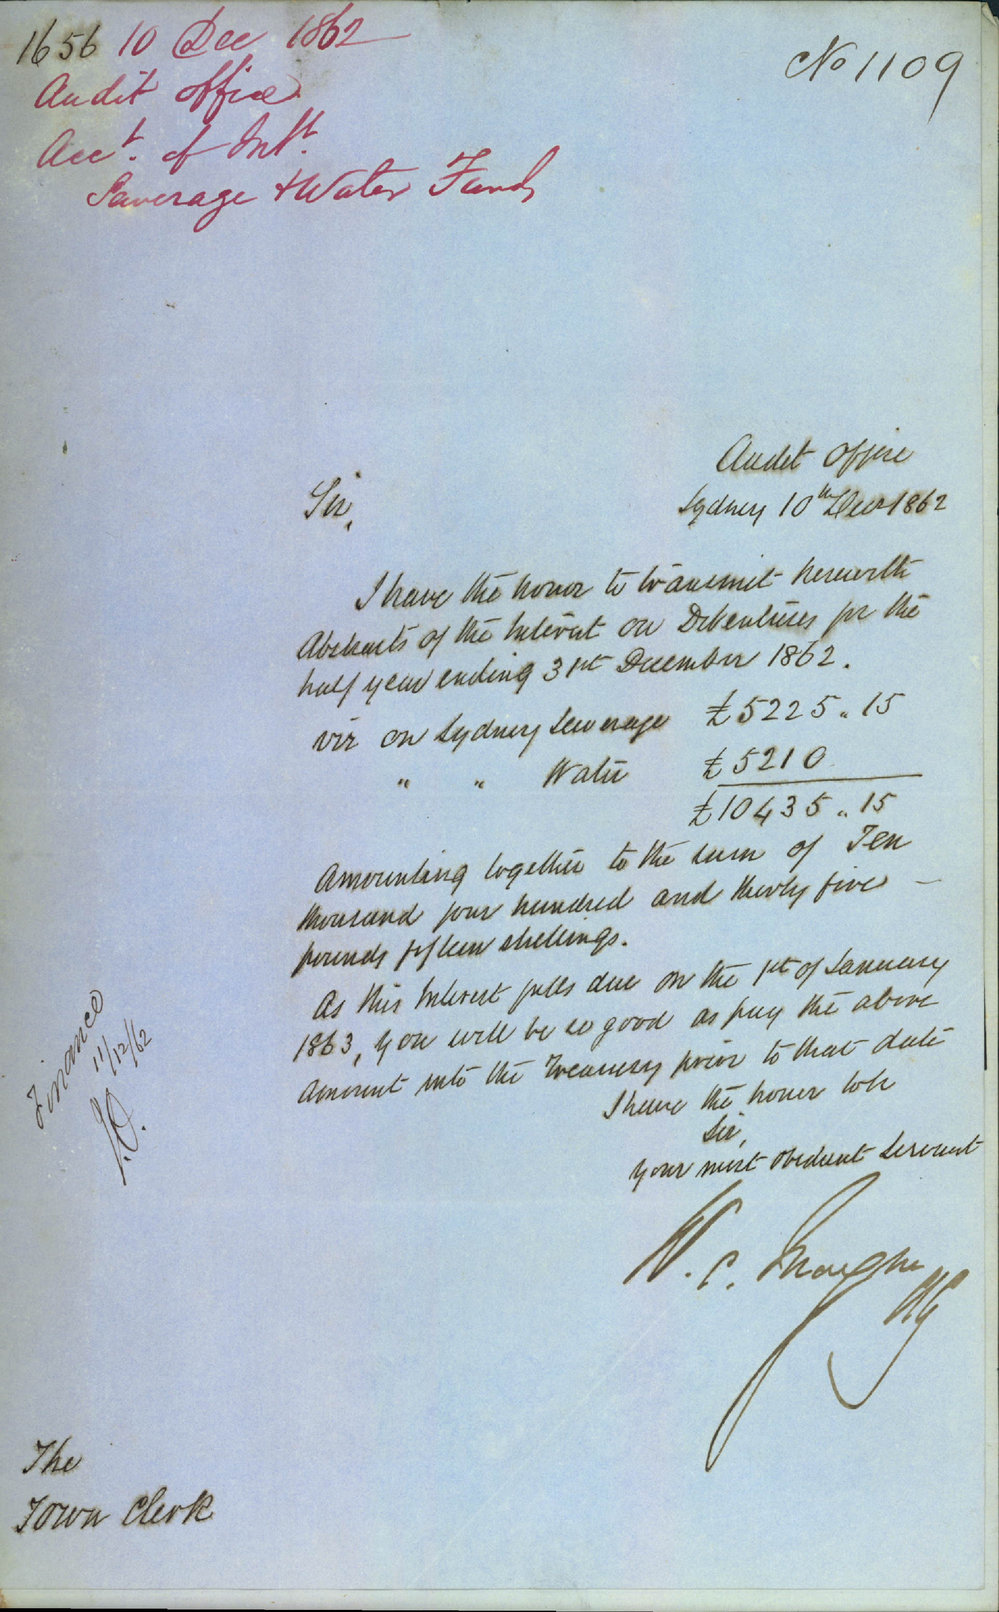 1656 10 Dec 1862
Audit office
Acct. of Int.
Sewerage & Water Funds
No 1109
Audit Office
Sydney 10th Decr 1862
Sir,
I have the honor to transmit herewith
Abstracts of the Interest on Debentures for the
half year ending 31st December 1862.
viz on Sydney Sewerage £5225 " 15
" " Water £5210
£10435 " 15
Amounting together to the sum of Ten
thousand four hundred and thirty five –
pounds fifteen shillings.
As this Interest falls due on the 1st of January
1863, you will be so good as pay the above
Amount into the Treasury prior to that date
I have the honor to be
Sir,
Your most obedient Servant
W. C.
AG
Finance
11/12/62
J.O.
The
Town Clerk